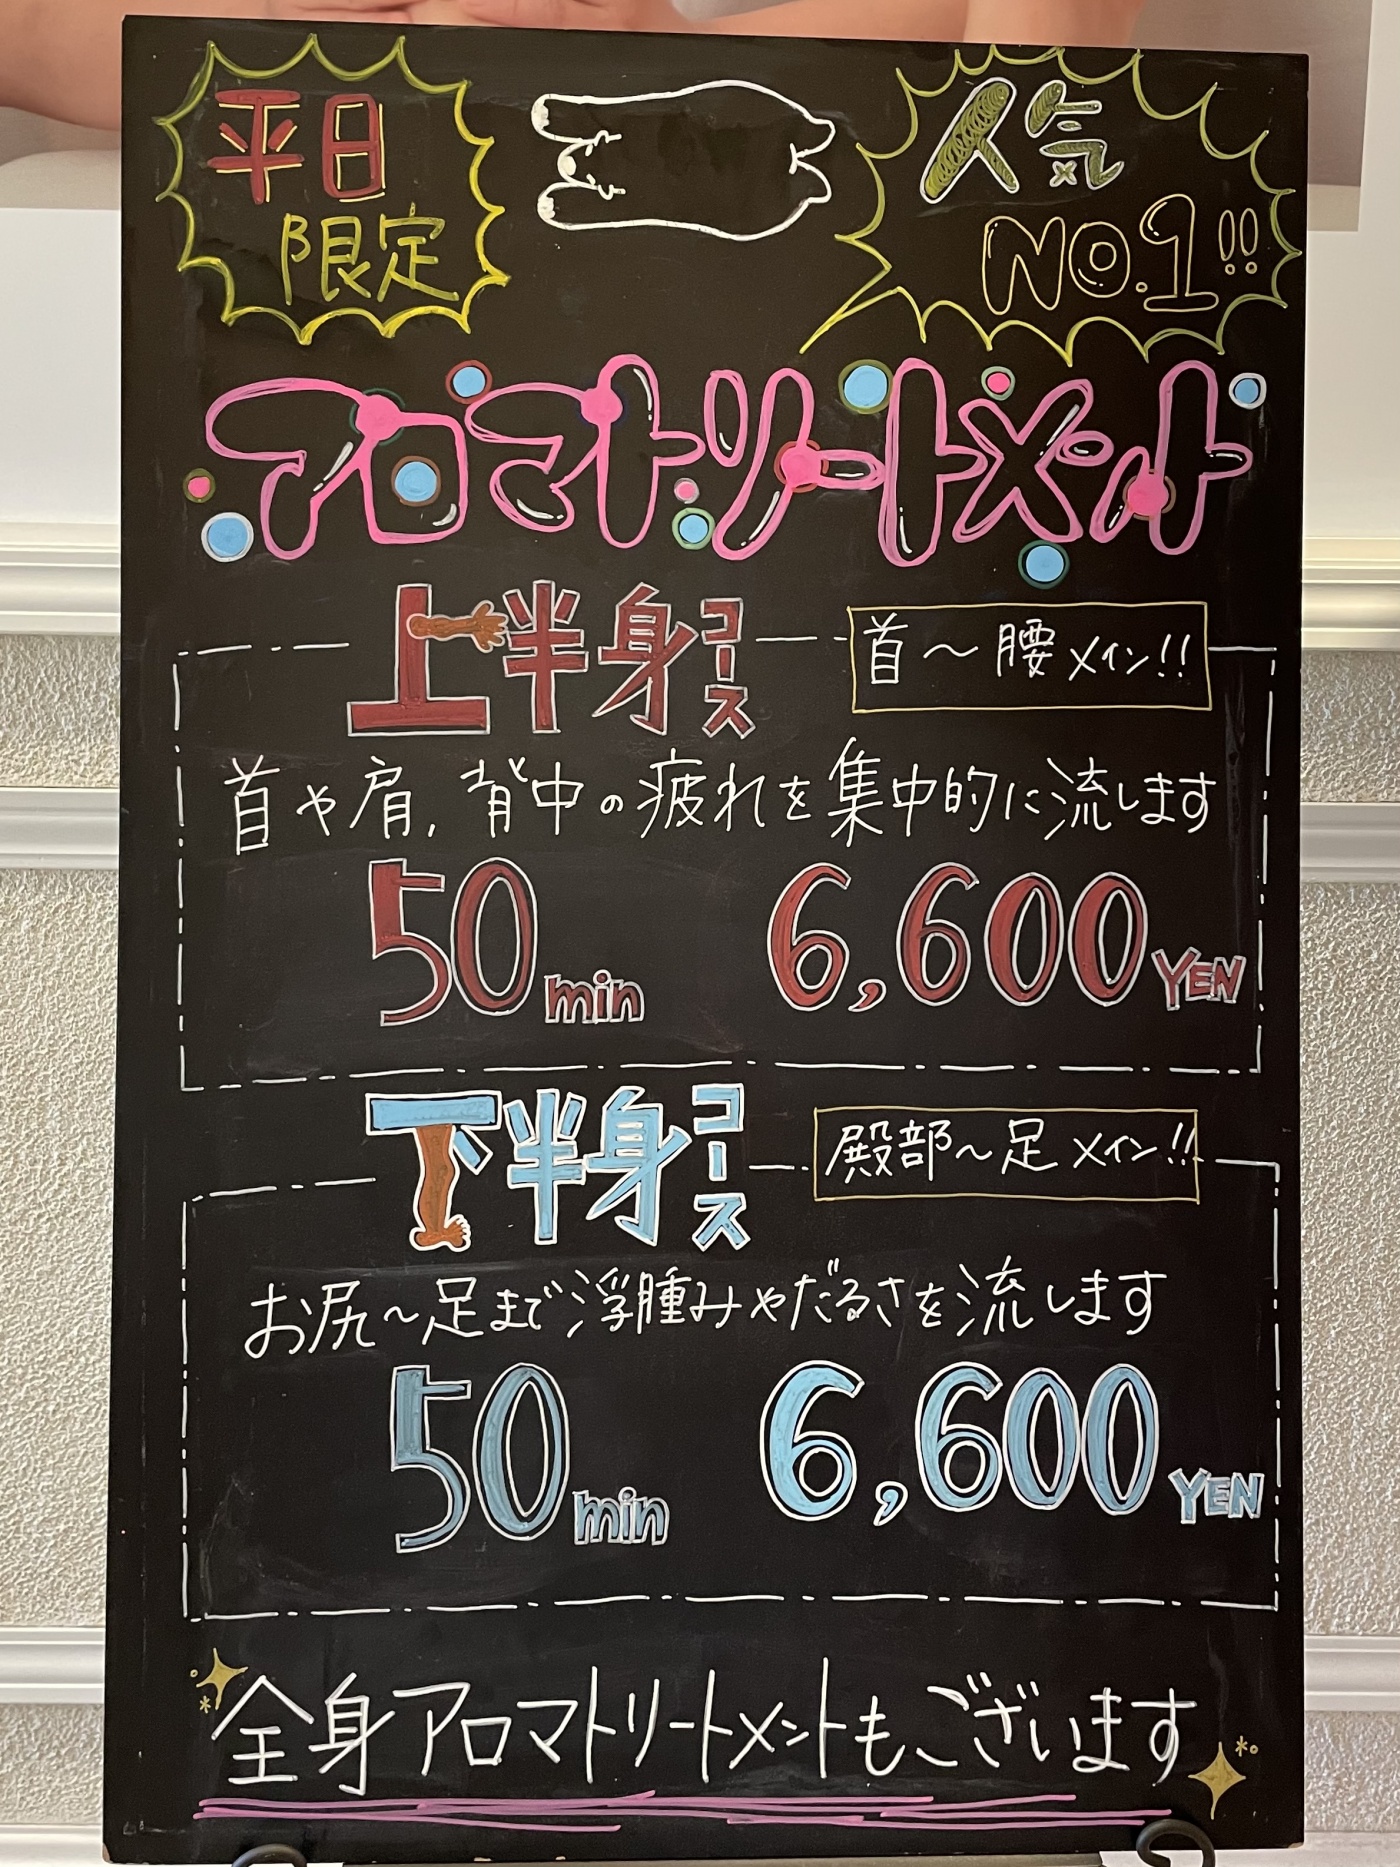 平日
限定
人気
NO.1!!
アロマトリートメント
上半身コース
首～腰 メイン!!
首や肩、背中の疲れを集中的に流します
50min 6,600YEN
下半身コース
殿部～足 メイン!!
お尻～足まで浮腫みやだるさを流します
50min 6,600YEN
全身アロマトリートメントもございます